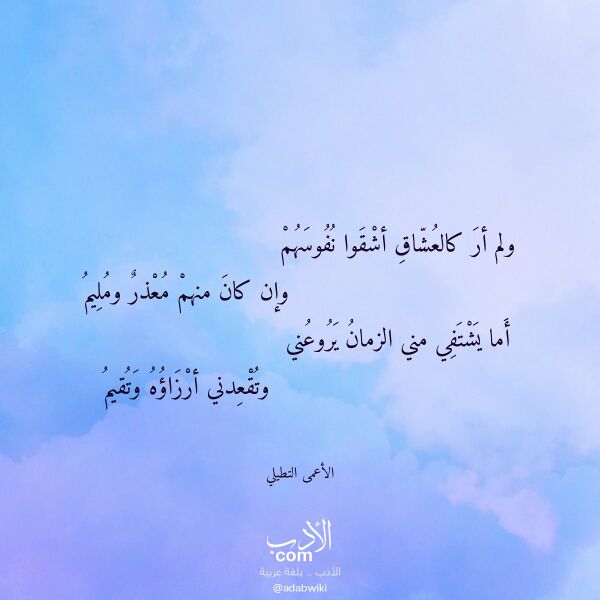 ولم أرَ كالعُشّاقِ أشْقَوا نُفُوسَهُمْ
وإن كانَ منهمْ مُعْذرٌ ومُلِيمُ
أَما يَشْتَفِي مني الزمانُ يَرُوعُني
وتُقْعِدني أرْزَاؤُهُ وَتُقيمُ
الأعمى التطيلي
الأدب
com
الأدب .. بلغة عربية
@adabwiki